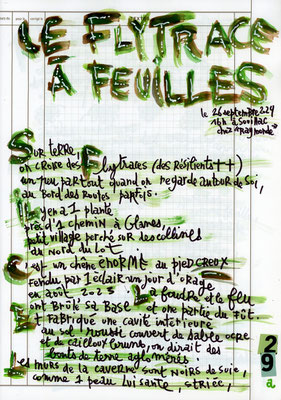 LE FLYTRACE
À FEUILLES
le 26 septembre 2024
16h à Souillac
chez "Raymonde"
Sur terre,
on croise des Flytraces (des Résilients++)
un peu partout quand on regarde autour de soi,
au bord des routes parfois.
Il y en a 1 planté
près d'1 chemin à Glanes,
petit village perché sur des collines
au nord du Lot.
C'est un chêne ÉNORME au pied CREUX
fendu par 1 éclair un jour d'orage
en août 2023. La foudre et le feu
ont brûlé sa base et une partie du fût
et fabriqué une cavité intérieure
au sol roussi couvert de sable ocre
et de cailloux bruns, on dirait des
bouts de terre aglomérés.
Les murs de la caverne sont noirs de suie,
comme 1 peau luisante, striée,
29
a